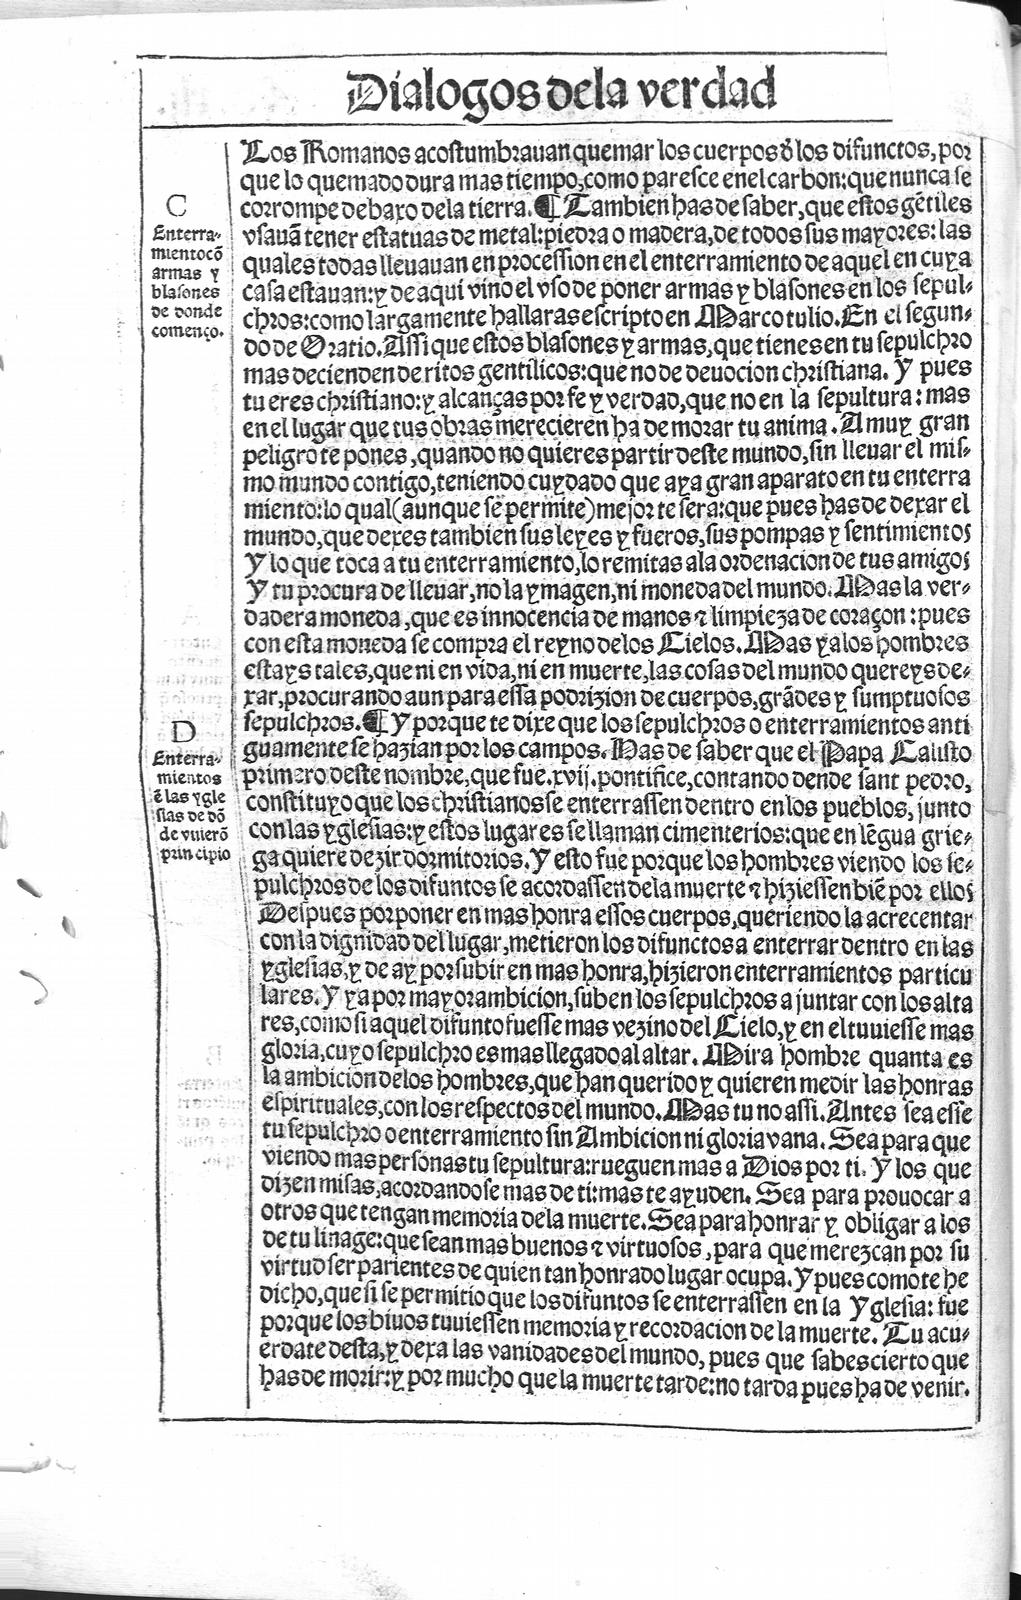 Dialogos dela verdad
C
Enterra-
miento cõ
armas y
blasones
de donde
començo.
Los Romanos acostumbrauan quemar los cuerpos d̃ los difunctos, por
que lo quemado dura mas tiempo, como paresce enel carbon: que nunca se
corrompe debaxo dela tierra. ¶ Tambien has de saber, que estos gẽtiles
vsauã tener estatuas de metal: piedra o madera, de todos sus mayores: las
quales todas lleuauan en procession en el enterramiento de aquel en cuya
casa estauan: y de aqui vino el vso de poner armas y blasones en los sepul-
chros: como largamente hallaras escripto en Marco tulio. En el segun-
do de Oratio. Assi que estos blasones y armas, que tienes en tu sepulchro
mas decienden de ritos gentilicos: que no de deuocion christiana. Y pues
tu eres christiano: y alcanças por fe y verdad, que no en la sepultura: mas
en el lugar que tus obras merecieren ha de morar tu anima. A muy gran
peligro te pones, quando no quieres partir deste mundo, sin lleuar el mis-
mo mundo contigo, teniendo cuydado que aya gran aparato en tu enterra
miento: lo qual (aunque se permite) mejor te sera: que pues has de dexar el
mundo, que dexes tambien sus leyes y fueros, sus pompas y sentimientos
Y lo que toca a tu enterramiento, lo remitas ala ordenacion de tus amigos
Y tu procura de lleuar, no la ymagen, ni moneda del mundo. Mas la ver-
dadera moneda, que es innocencia de manos ⁊ limpieza de coraçon: pues
con esta moneda se compra el reyno delos Cielos. Mas ya los hombres
estays tales, que ni en vida, ni en muerte, las cosas del mundo quereys de-
xar, procurando aun para essa podrizion de cuerpos, grãdes y sumptuosos
sepulchros. ¶ Y porque te dixe que los sepulchros o enterramientos anti
guamente se hazian por los campos. Has de saber que el Papa Calisto
primero deste nombre, que fue .xvij. pontifice, contando dende sant pedro,
constituyo que los christianos se enterrassen dentro en los pueblos, junto
con las yglesias: y estos lugares se llaman cimenterios: que en lẽgua grie-
ga quiere dezir dormitorios. Y esto fue porque los hombres viendo los se-
pulchros de los difuntos se acordassen dela muerte ⁊ hiziessen biẽ por ellos
Despues por poner en mas honra essos cuerpos, queriendo la acrecentar
con la dignidad del lugar, metieron los difunctos a enterrar dentro en las
yglesias, y de ay por subir en mas honra, hizieron enterramientos particu
lares. Y ya por mayor ambicion, suben los sepulchros a juntar con los alta
res, como si aquel difunto fuesse mas vezino del Cielo, y en el tuuiesse mas
gloria, cuyo sepulchro es mas llegado al altar. Mira hombre quanta es
la ambicion delos hombres, que han querido y quieren medir las honras
espirituales, con los respectos del mundo. Mas tu no assi. Antes sea esse
tu sepulchro o enterramiento sin Ambicion ni gloria vana. Sea para que
viendo mas personas tu sepultura: rueguen mas a Dios por ti. Y los que
dizen misas, acordandose mas de ti: mas te ayuden. Sea para prouocar a
otros que tengan memoria dela muerte. Sea para honrar y obligar a los
de tu linage: que sean mas buenos ⁊ virtuosos, para que merezcan por su
virtud ser parientes de quien tan honrado lugar ocupa. Y pues como te he
dicho, que si se permitio que los difuntos se enterrassen en la Yglesia: fue
porque los biuos tuuiessen memoria y recordacion de la muerte. Tu acu-
erdate desta, y dexa las vanidades del mundo, pues que sabes cierto que
has de morir: y por mucho que la muerte tarde: no tarda pues ha de venir.
D
Enterra-
mientos
ẽ las ygle
sias de dõ
de vuierõ
principio